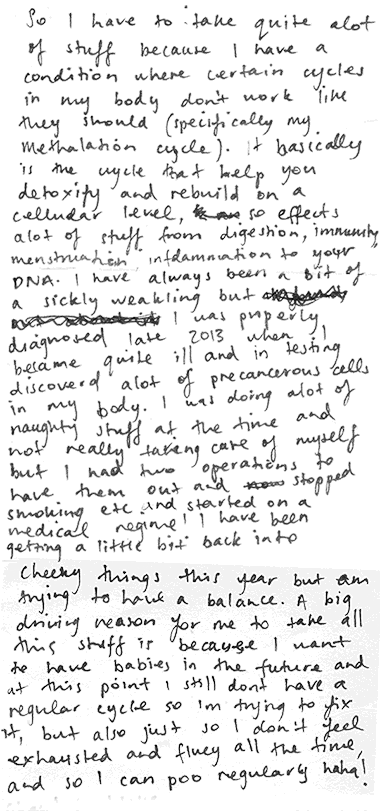 So I have to take quite alot
of stuff because I have a
condition where certain cycles
in my body don't work like
they should (specifically my
Methalation cycle). It basically
is the cycle that help you
detoxify and rebuild on a
cellular level, so effects
alot of stuff from digestion, immunity,
menstruation, infdamnation to your
DNA. I have always been a bit of
a sickly weakling but
I was properly
diagnosed late 2013 when I
became quite ill and in testing
discoverd alot of precancerous cells
in my body. I was doing alot of
naughty stuff at the time and
not really taking care of myself
but I had two operations to
have them out and stopped
smoking etc and started on a
medical regime! I have been
getting a little bit back into
Cheeky things this year but am
trying to have a balance. A big
driving reason for me to take all
this stuff is because I want
to have babies in the future and
at this point I still dont have a
regular cycle so im trying to fix
it, but also just so I don't feel
exhausted and fluey all the time,
and so I can poo regularly haha!